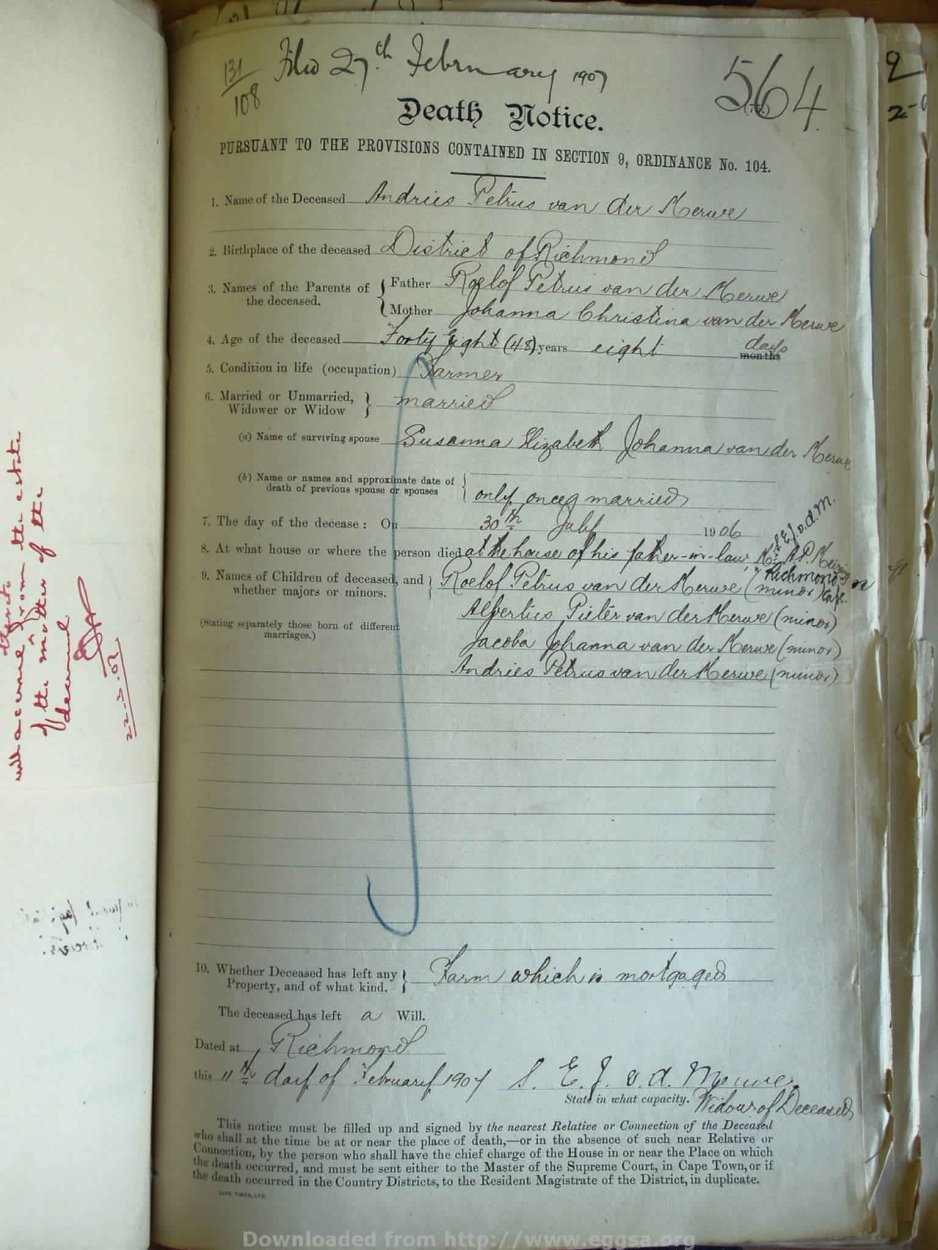 131
108
Filed 27th February 1907
564
Death Notice.
PURSUANT TO THE PROVISIONS CONTAINED IN SECTION 9, ORDINANCE No. 104.
1. Name of the Deceased Andries Petrus van der Merwe
2. Birthplace of the deceased District of Richmond
3. Names of the Parents of the deceased. Father Roelof Petrus van der Merwe
Mother Johanna Christina van der Merwe
4. Age of the deceased Forty Eight (48) years eight days months
5. Condition in life (occupation) Farmer
6. Married or Unmarried, Widower or Widow married
(a) Name of surviving spouse Susanna Elizabeth Johanna van der Merwe
(b) Name or names and approximate date of death of previous spouse or spouses only once married
7. The day of the decease: On 30th July 1906
8. At what house or where the person died at the house of his father-in-law Mr A.P.
Richmond
S.E.J. v.d.M.
9. Names of Children of deceased, and whether majors or minors. Roelof Petrus van der Merwe (minor)
Albertus Pieter van der Merwe (minor)
(Stating separately those born of different marriages.)
Jacoba Johanna van der Merwe (minor)
Andries Petrus van der Merwe (minor)
10. Whether Deceased has left any Property, and of what kind. Farm which is mortgaged
The deceased has left a Will.
Dated at Richmond
this 11th day of February 1907 S. E. J. v. d. Merwe.
State in what capacity. Widow of Deceased
This notice must be filled up and signed by the nearest Relative or Connection of the Deceased
who shall at the time be at or near the place of death,—or in the absence of such near Relative or
Connection, by the person who shall have the chief charge of the House in or near the Place on which
the death occurred, and must be sent either to the Master of the Supreme Court, in Cape Town, or if
the death occurred in the Country Districts, to the Resident Magistrate of the District, in duplicate.
CAPE TIMES, LTD.
from the estate
of the mother of the
deceased
Downloaded from http://www.eggsa.org